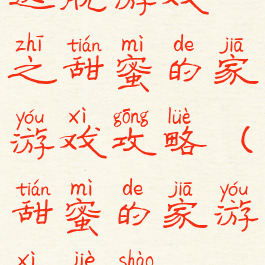 zhī tián mì de jiā
之甜蜜的家
yóu xì gōng lüè
游戏攻略（
tián mì de jiā yóu
甜蜜的家游
xì jiè shào